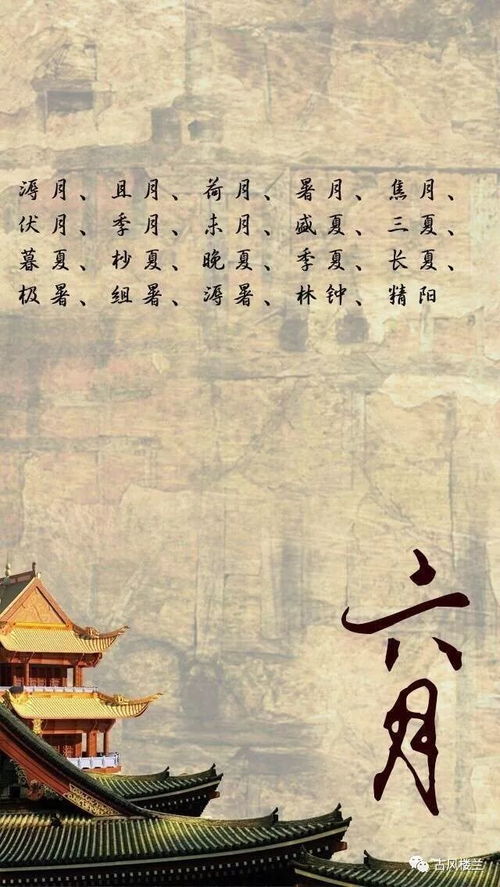 溽月、且月、荷月、暑月、焦月、
伏月、季月、未月、盛夏、三夏、
暮夏、杪夏、晚夏、季夏、长夏、
极暑、组暑、溽暑、林钟、精阳
六月
古风楼兰